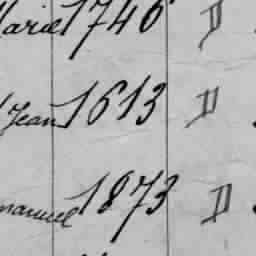 Marie 1746 D
Jean 1613 D
manuel 1873 D